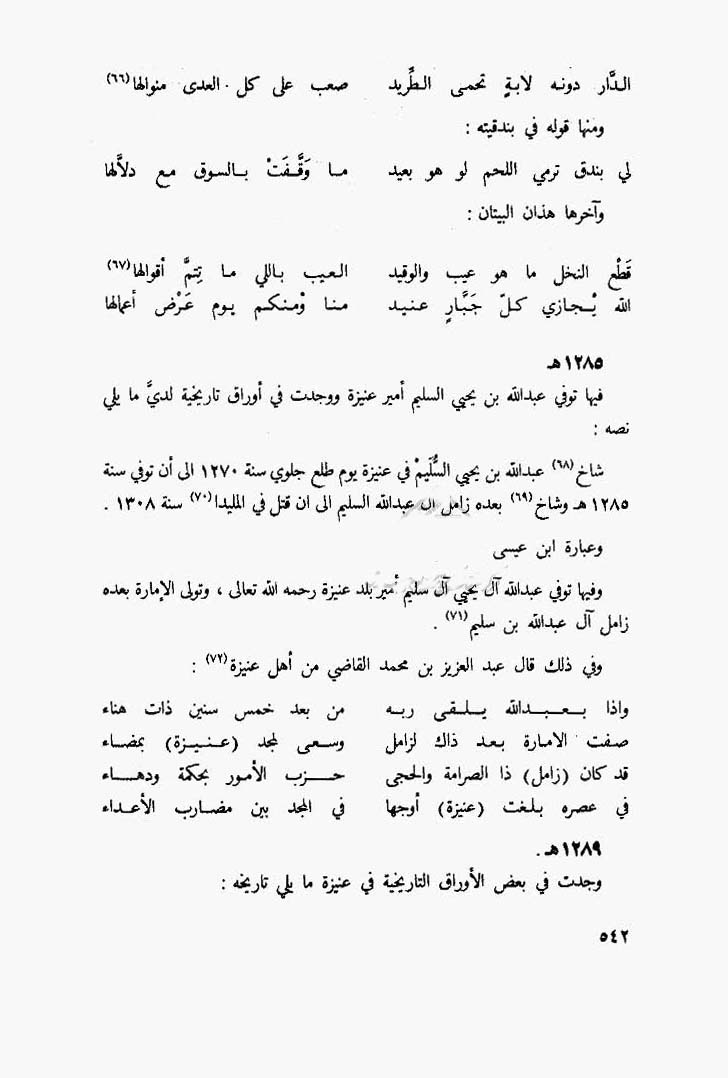 الـدَّار دونـه لابـةٍ تحمـى الـطِّريد صعب على كل العدى منوالها(٦٦)
ومنها قوله في بندقيته :
لي بندق ترمي اللحم لو هو بعيد مـا وَقَّـفَتْ بـالسوق مـع دلاَّلها
وآخرها هذان البيتان :
قَطْع النخل ما هو عيب والوقيد العـيب بـاللي مـا تِتِمَّ أقوالها(٦٧)
الله يْـجـازي كـلّ جَبَّـارٍ عـنـيـد منـا وْمنـكـم يـوم عَـرْض أعمالها
١٢٨٥هـ
فيها توفي عبدالله بن يحيي السليم أمير عنيزة ووجدت في أوراق تاريخية لديَّ ما يلي
نصه :
شاخ(٦٨) عبدالله بن يحيي السُّلَيمْ في عنيزة يوم طلع جلوي سنة ١٢٧٠ الى أن توفي سنة
١٢٨٥ هـ وشاخ(٦٩) بعده زامل ال عبدالله السليم الى ان قتل في المليدا(٧٠) سنة ١٣٠٨ .
وعبارة ابن عيسى
وفيها توفي عبدالله آل يحيي آل سليم أمير بلد عنيزة رحمه الله تعالى ، وتولى الإمارة بعده
زامل آل عبدالله بن سليم(٧١) .
وفي ذلك قال عبد العزيز بن محمد القاضي من أهل عنيزة(٧٢) :
واذا بـعـبـدالله يـلـقـى ربـه من بعد خمس سنين ذات هناء
صفت الامارة بـعـد ذاك لزامل وسـعـى لمجد (عـنـيـزة) بمضـاء
قد كان (زامل) ذا الصرامة والحجى حـزب الأمـور بحكمة ودهـاء
في عصره بـلـغـت (عنيزة) أوجها في المجد بين مضـارب الأعـداء
١٢٨٩هـ .
وجدت في بعض الأوراق التاريخية في عنيزة ما يلي تاريخه :
٥٤٢